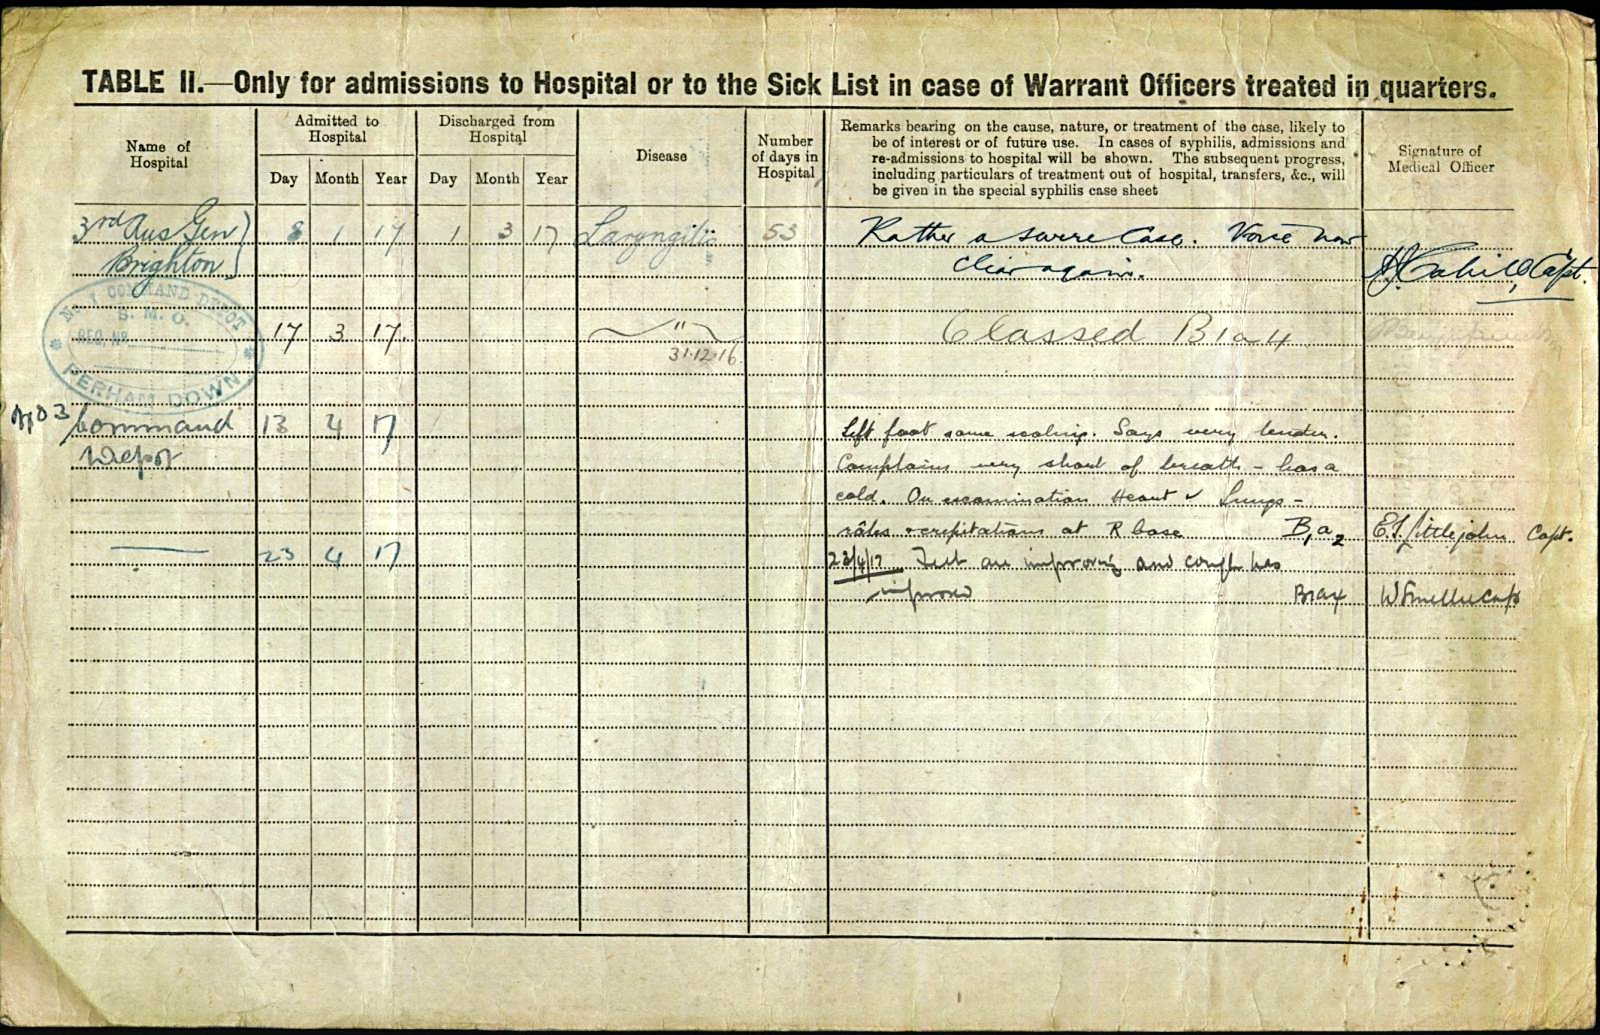 TABLE II.—Only for admissions to Hospital or to the Sick List in case of Warrant Officers treated in quarters.
Name of Hospital
Admitted to Hospital
Discharged from Hospital
Disease
Number of days in Hospital
Remarks bearing on the cause, nature, or treatment of the case, likely to
be of interest or of future use. In cases of syphilis, admissions and
re-admissions to hospital will be shown. The subsequent progress,
including particulars of treatment out of hospital, transfers, &c., will
be given in the special syphilis case sheet
Signature of Medical Officer
Day Month Year Day Month Year
3rd Aus Gen 8 1 17 1 3 17 Laryngitis 53 Rather a severe Case. Voice now
Brighton clear again. Cahill Capt.
No. 1 COMMAND DEPOT
S. M. O.
REG. No.
PERHAM DOWN
17 3 17. " Classed B1a4
31.12.16.
No 3 Command 13 4 17 Left foot some scaling. Says very tender.
Depot Complains very short of breath - has a
cold. On examination Heart ✓ Lungs -
râles + crepitations at R base B1a2 E.S. Littlejohn Capt.
23 4 17 23/4/17 Feet are improving and cough has
improved B1a4 W Smellie Capt